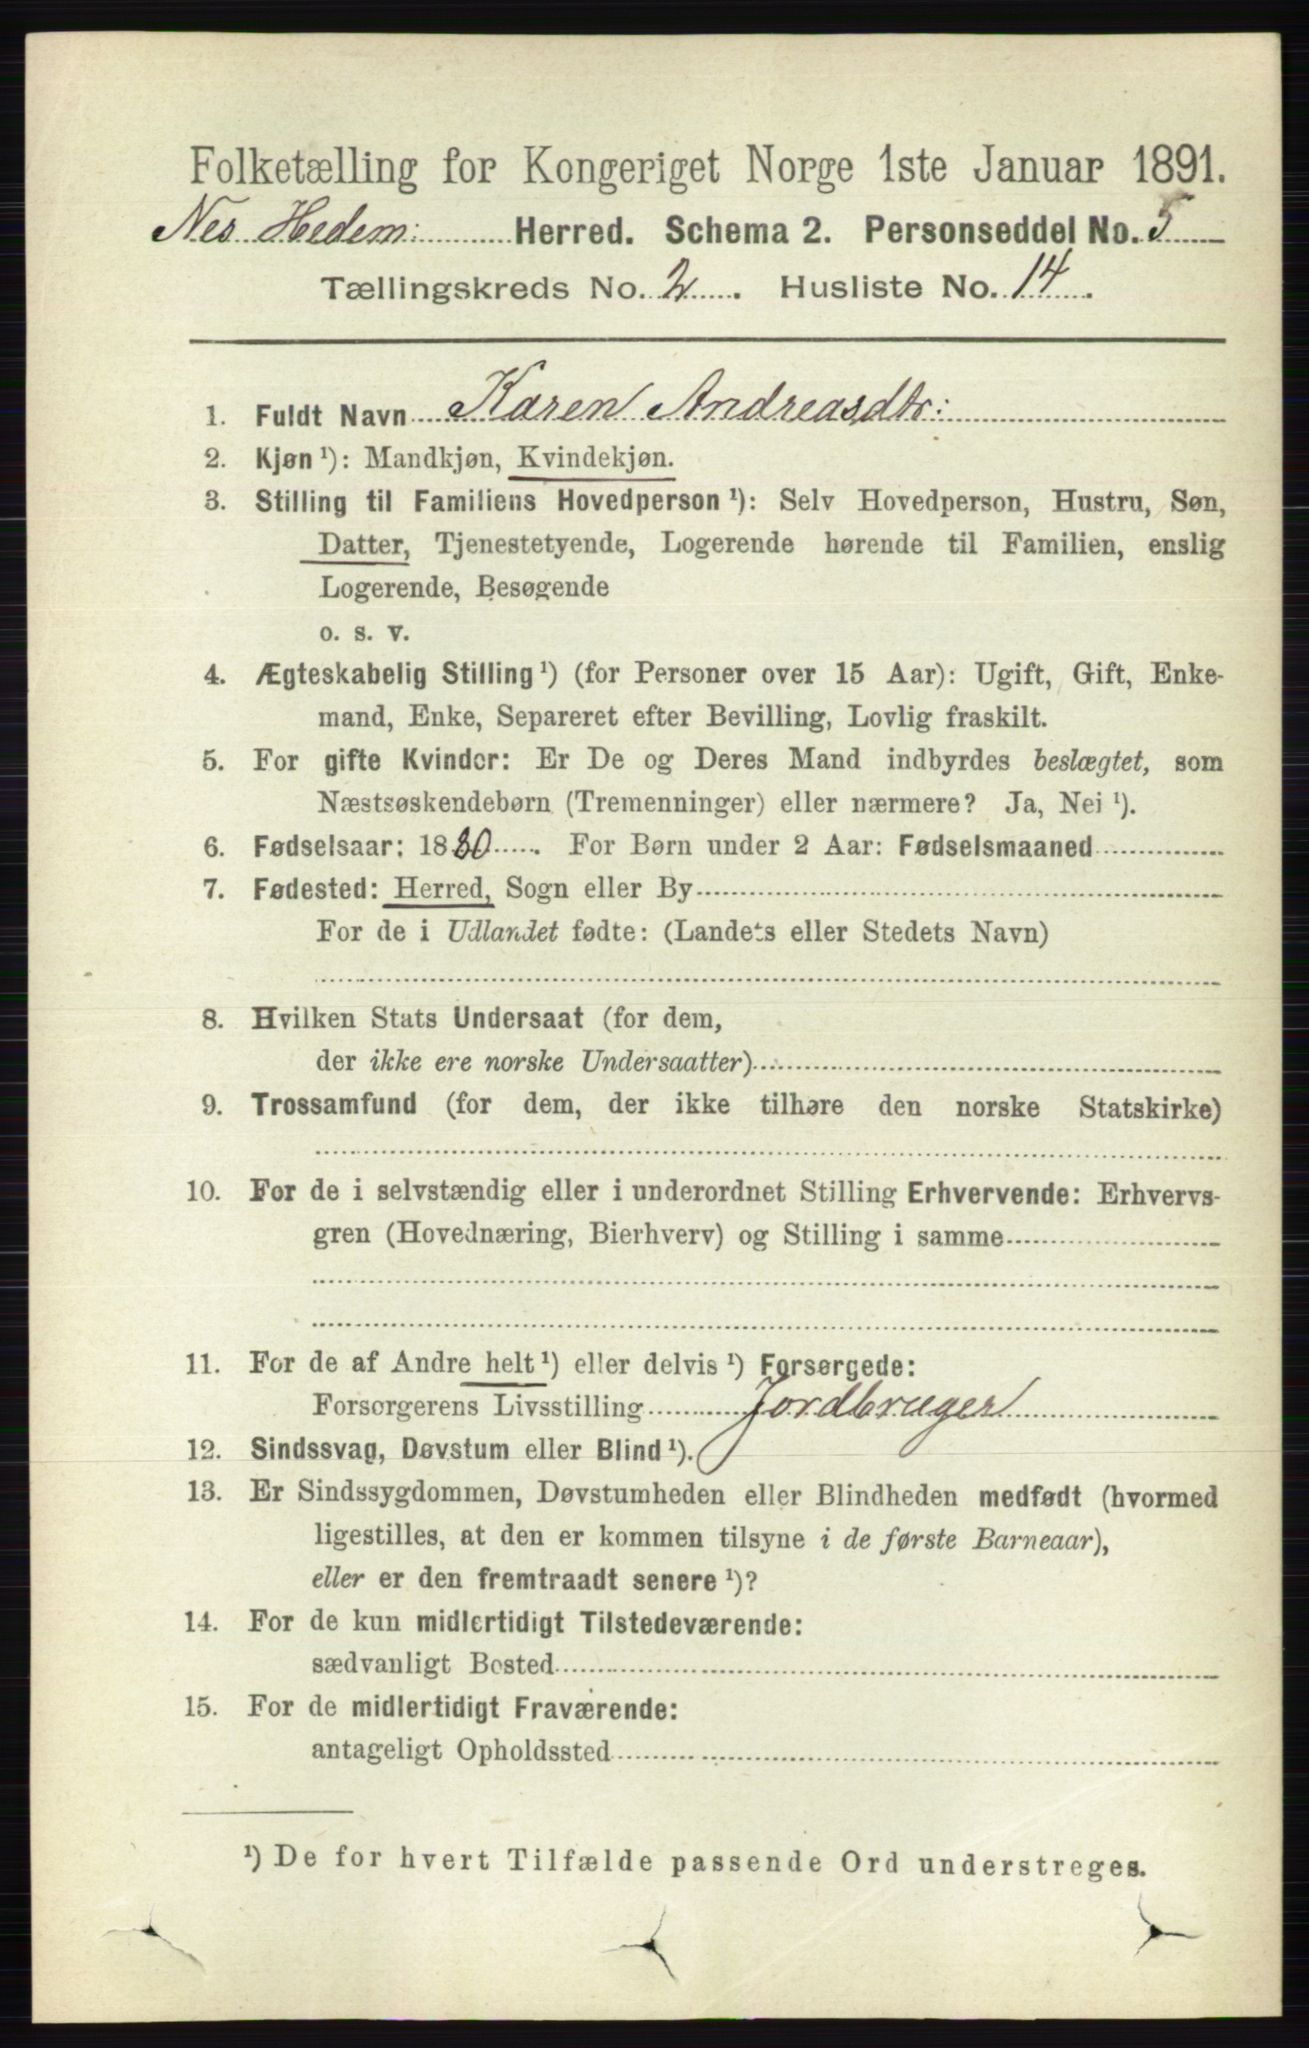 Folketælling for Kongeriget Norge 1ste Januar 1891.
Nes Hedem: Herred. Schema 2. Personseddel No. 5
Tællingskreds No. 2. Husliste No. 14.
1. Fuldt Navn Karen Andreasdtr:
2. Kjøn ¹): Mandkjøn, Kvindekjøn.
3. Stilling til Familiens Hovedperson ¹): Selv Hovedperson, Hustru, Søn,
Datter, Tjenestetyende, Logerende hørende til Familien, enslig
Logerende, Besøgende
o. s. v.
4. Ægteskabelig Stilling ¹) (for Personer over 15 Aar): Ugift, Gift, Enke-
mand, Enke, Separeret efter Bevilling, Lovlig fraskilt.
5. For gifte Kvinder: Er De og Deres Mand indbyrdes beslægtet, som
Næstsøskendebørn (Tremenninger) eller nærmere? Ja, Nei ¹).
6. Fødselsaar: 1880. For Børn under 2 Aar: Fødselsmaaned
7. Fødested: Herred, Sogn eller By
For de i Udlandet fødte: (Landets eller Stedets Navn)
8. Hvilken Stats Undersaat (for dem,
der ikke ere norske Undersaatter)
9. Trossamfund (for dem, der ikke tilhøre den norske Statskirke)
10. For de i selvstændig eller i underordnet Stilling Erhvervende: Erhvervs-
gren (Hovednæring, Bierhverv) og Stilling i samme
11. For de af Andre helt ¹) eller delvis ¹) Forsørgede:
Forsørgerens Livsstilling Jordbruger
12. Sindssvag, Døvstum eller Blind ¹).
13. Er Sindssygdommen, Døvstumheden eller Blindheden medfødt (hvormed
ligestilles, at den er kommen tilsyne i de første Barneaar),
eller er den fremtraadt senere ¹)?
14. For de kun midlertidigt Tilstedeværende:
sædvanligt Bosted
15. For de midlertidigt Fraværende:
antageligt Opholdssted
¹) De for hvert Tilfælde passende Ord understreges.